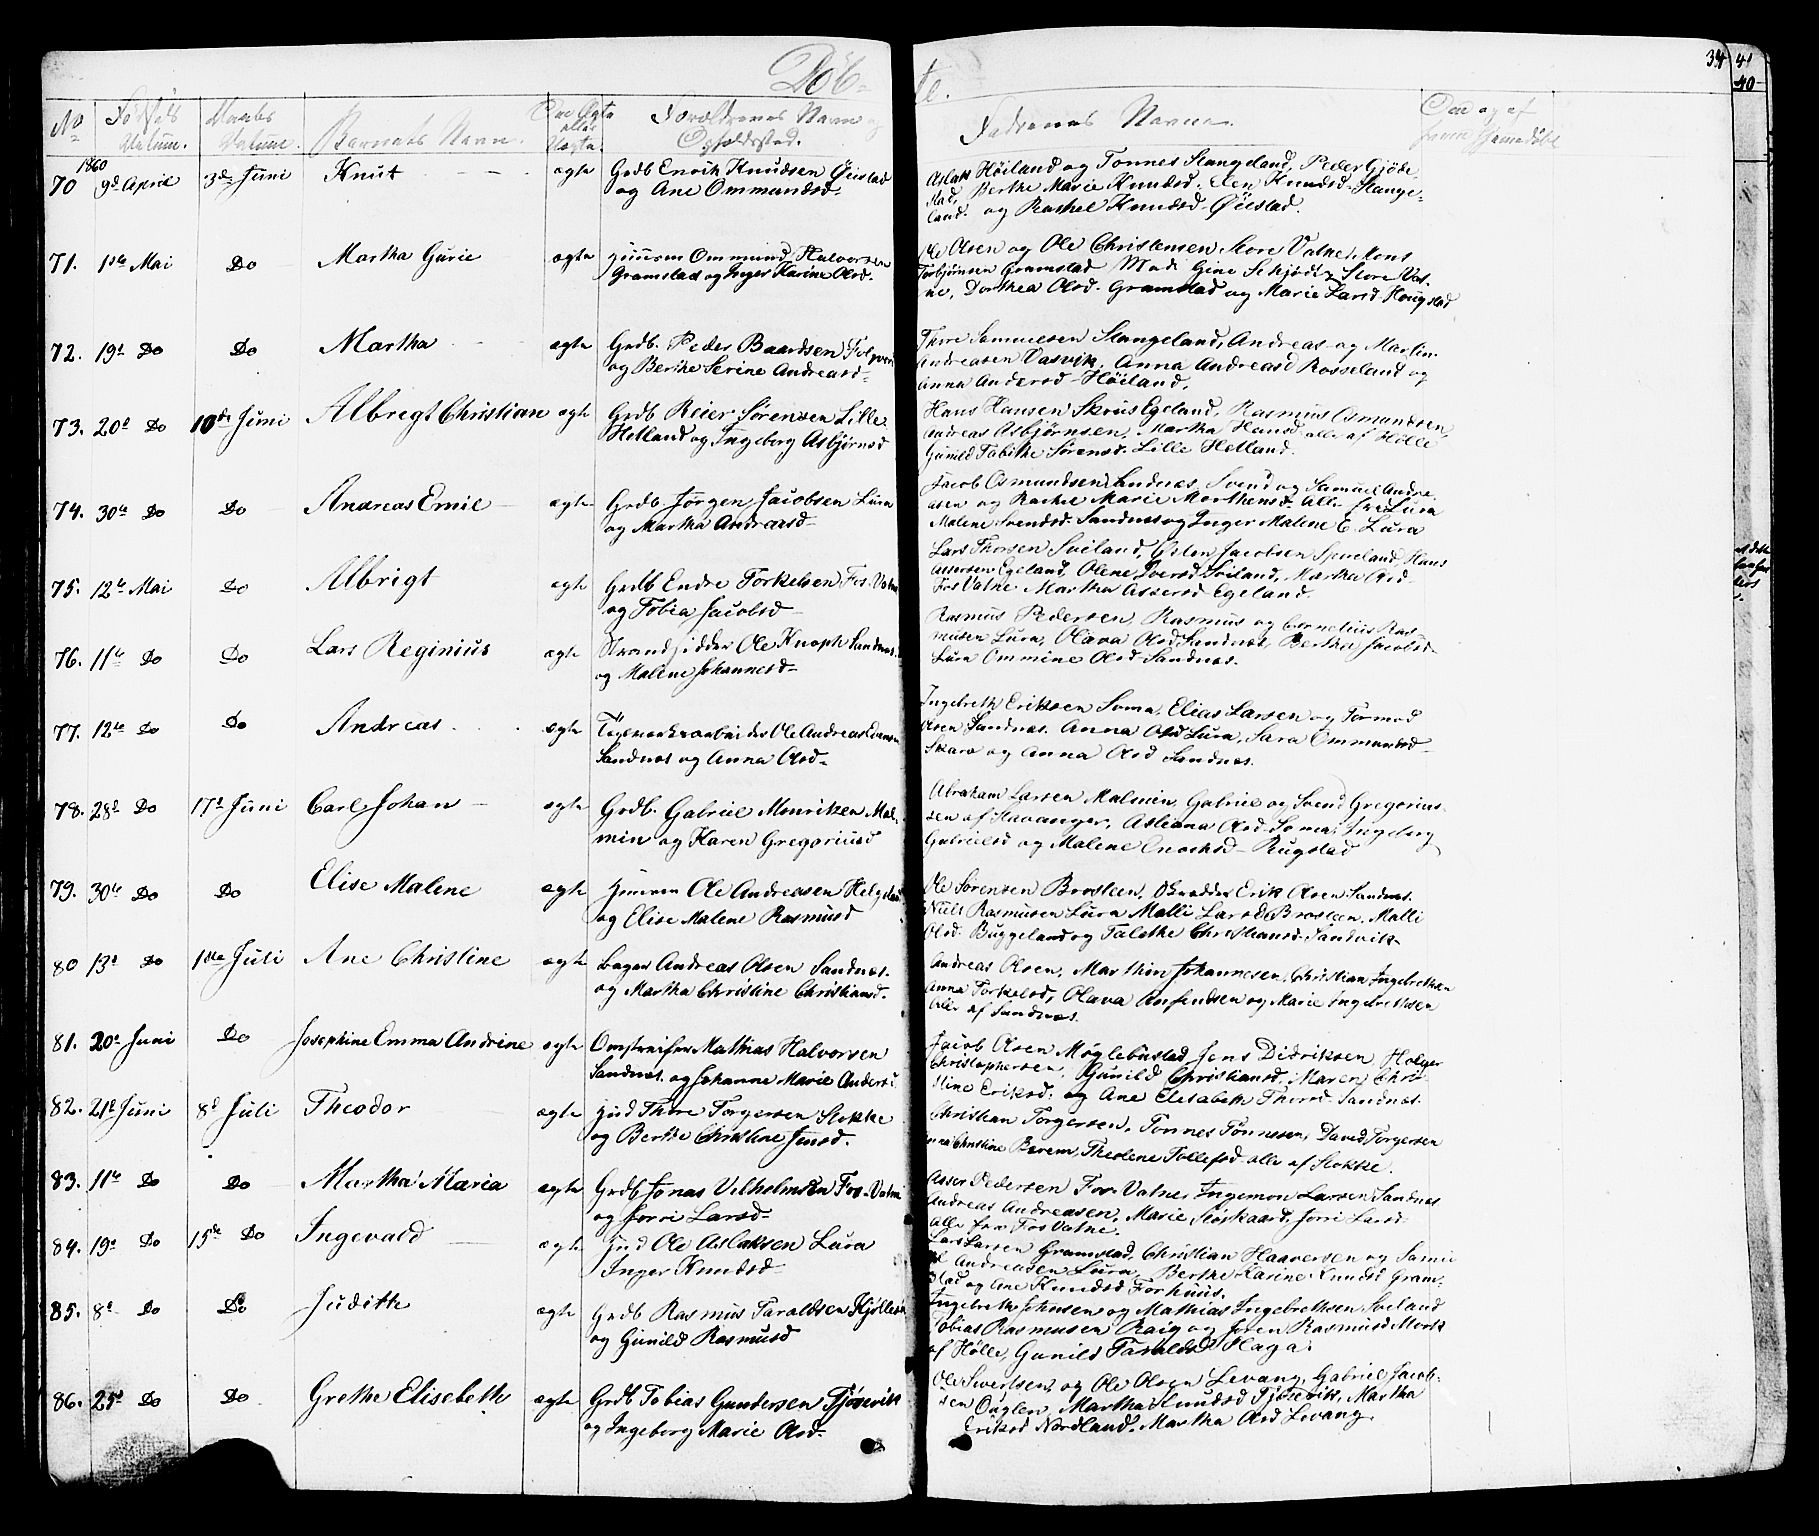 Döb-
te.
34 41
40
No
Fødsels Datum.
Daabs Datum.
Barnets Navn.
Om Ægte eller Uægte.
Forældrenes Navn og Opholdssted.
Faddernes Navne.
Om og af hvem hjemmedøbt
1860
70 9de April 3die Juni Knut ægte Grdb Enoch Knudsen Øiestad
og Ane Ommundsd.
Aslak Høiland og Tonnes Stangeland, Peder Gjøde-
stad, Berthe Marie Knudsd. Elen Knudsd. Stange-
land. og Rachel Knudsd Øiestad.
71. 1ste Mai Do Martha Gurie ægte Huusm Ommund Halvorsen
Gramstad og Inger Karine Olsd.
Ole Olsen og Ole Christensen Store Vatne, Mons
Torbjørnsen Gramstad Mad. Gine Schjødt, Store Vat-
ne, Dorthea Olsd. Gramstad og Marie Larsd. Hougstad
72. 19d Do Do Martha ægte Grdb. Peder Baardsen
og Berthe Serine Andreasd-
Thore Samuelsen Stangeland, Andreas og Martin
Andreasen Vasvik, Anna Andreasd Rosseland og
Anna Andersd Høiland.
73. 20d Do 10de Juni Albregt Christian ægte Grdb Reier Sørensen Lille
Hetland og Ingeborg Asbjørnsd
Hans Hansen Skrus Egeland, Rasmus Osmundsen,
Andreas Asbjørnsen, Martha Hansd. alle af Hølle
Gunild Tabithe Sørensd. Lille Hetland.
74. 30te Do Do Andreas Emil ægte Grdb Jørgen Jacobsen Lura
og Martha Andreasd
Jacob Osmundsen Sandnæs, Svend og Samuel Andre-
asen og Rachel Marie Morthensd. alle fra Lura
Malene Svendsd. Sandnæs og Inger Malene E. Lura
75. 12te Mai Do Albrigt ægte Grdb Endre Torkelsen Fos-Vatne
og Tobia Jacobsd
Lars Thorsen Sviland, Osten Jacobsen Skieland, Hans
Assersen Egeland, Olene Iversd Sviland, Martha Olsd
Fos Vatne Martha Assersd Egeland.
76. 11te Do Do Lars Reginius ægte Strandsidder Ole Knoph Sandnæs.
og Malene Johannesd
Rasmus Pedersen, Rasmus og Cornelius Ras-
musen Lura, Olava Olsd Sandnæs, Bertha Jacobsd
Lura Ommine Olsd Sandnæs.
77. 12te Do Do Andreas ægte Tegleværksarbeider Ole Andreas
Sandnæs og Anna Olsd
Ingebreth Eriksen Soma, Elias Larsen og Tormod
Olsen Sandnæs. Anna Olsd Lura, Sara Ommundsd
Skara og Anna Olsd Sandnæs.
78. 28d Do 17d Juni Carl Johan ægte Grdb. Gabriel Monriksen Mal-
min og Karen Gregoriusd
Abraham Larsen Malmin, Gabriel og Svend Gregorius-
sen af Stavanger, Asleana Olsd Soma, Ingeborg
Gabrielsd og Malene Enochsd Rugstad
79. 30te Do Do Elise Malene ægte Huusm Ole Andreasen Helgeland
og Elise Malene Rasmusd
Ole Sørensen Brosteen, Skrædder Erik Olsen Sandnæs.
Niels Rasmusen Lura Malli Larsd Brosteen. Malli
Olsd. Buggeland og Talethe Christiansd. Sandvik
80 13d Do 1ste Juli Ane Christine ægte Bager Andreas Olsen Sandnæs.
og Martha Christine Christiansd.
Andreas Olsen, Marthin Johannesen, Christian Ingebrethsen
Anna Torkelsd, Olava Anfindsen og Marie Ingebrethsen
Alle af Sandnæs.
81. 20d Juni Do Josephine Emma Andrine ægte Omstreifer Mathias Halvorsen
Sandnæs. og Johanne Marie Andersd
Jacob Olsen Møglebustad, Jens Didriksen, Holger
Christophersen, Gunild Christiansd, Maren Chri-
stine Eriksd. og Ane Elisabeth Thorsd Sandnæs.
82. 21d Juni 8d Juli Theodor ægte Hud Thore Torgersen Stokke
og Berthe Christine Jensd.
Christian Torgersen, Tonnes Tönnesen, David Torgersen
Anna Christine Berem, Theolene Tollefsd alle af Stokke.
83. 11te Do Do Martha Maria ægte Grdb Jonas Vilhelmsen Fos-Vatne
og Jorri Larsd
Asser Pedersen Fos-Vatne, Ingemon Larsen Sandnæs
Andreas Andreasen, Marie Skjøskaard, Jorri Larsd
alle fra Fos Vatne.
84. 19d Do 15de Do Ingevald ægte Hud Ole Aslaksen Lura
Inger Knudsd
Lars Larsen Gramstad, Christian Haaversen og Samu-
el Andreasen Lura, Berthe Karine Knudsd Gram-
stad og Ane Knudsd Forhuus.
85. 8d Do Do Judith ægte Grdb Rasmus Taraldsen
og Gunild Rasmusd
Ingebreth Johnsen og Mathias Ingebrethsen Sveland
Tobias Rasmussen Raig og Joren Rasmusd Mork
af Hølle, Gunild Taraldsd Haga.
86. 25d Do Do Grethe Elisebeth ægte Grdb Tobias Gundersen Tjøsevik
og Ingeborg Marie Olsd
Ole Sivertsen og Ole Olsen Levang, Gabriel Jacob-
sen Ouglen, Martha Knudsd Tjøsevik, Martha
Eriksd Nordland, Martha Olsd Levang.